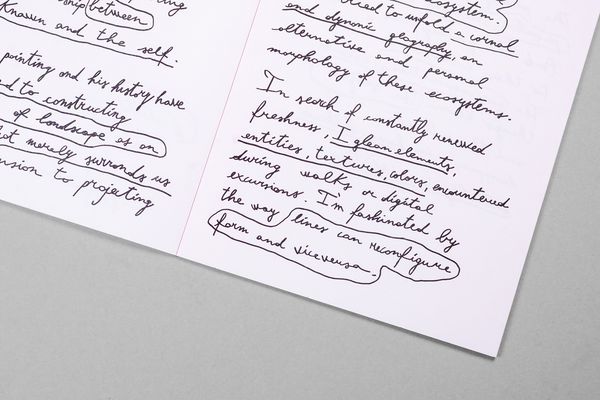 between
Known and the self.
painting and his history have
d to constructing
of landscape as an
not merely surrounds us
nsion to projecting
ecosystem.
tried to unfold a carnal
and dynamic geography, an
alternative and personal
morphology of these ecosystems.
In search of constantly renewed
freshness, I glean elements,
entities, textures, colors, encountered
during walks or digital
excursions. I'm fashinated by
the way lines can reconfigure
form and viceversa.